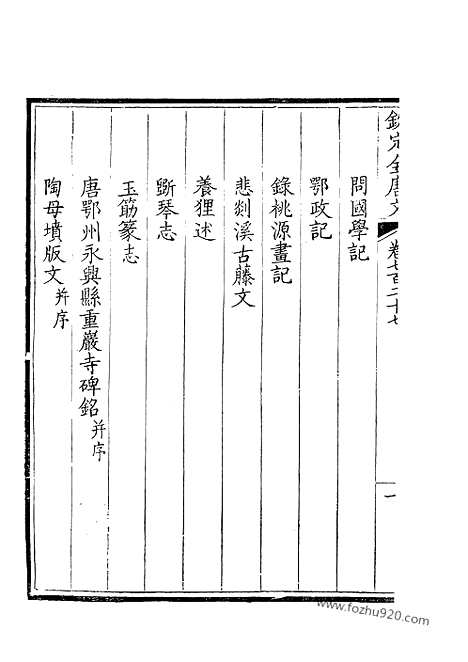 欽定全唐文
卷七百二十七
一
問國學記
鄂政記
錄桃源畫記
悲剡溪古藤文
養狸述
斲琴志
玉筯篆志
唐鄂州永興縣重巖寺碑銘并序
陶母墳版文并序
www.fozhu920.com